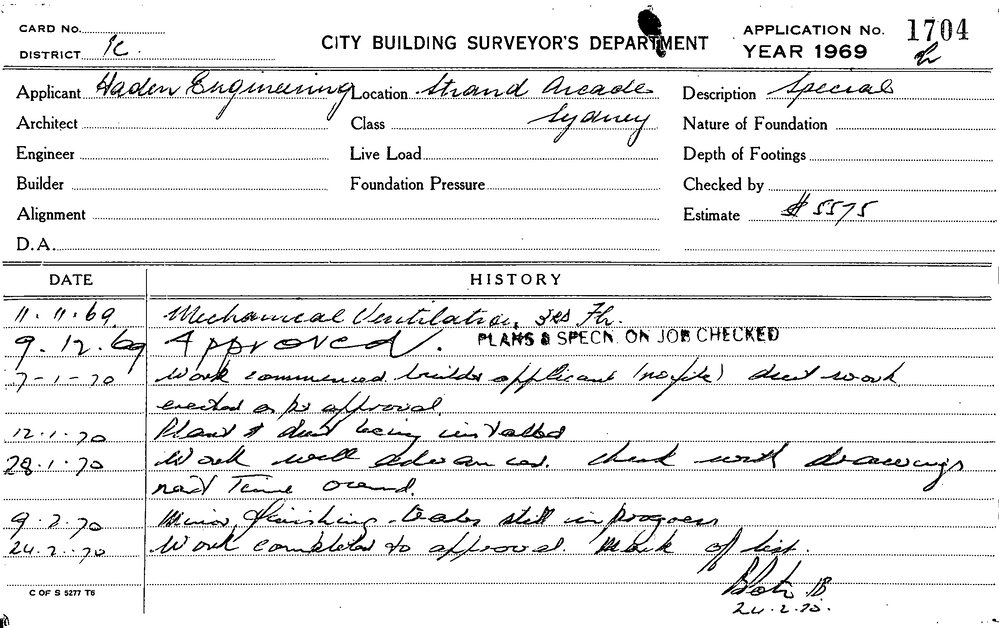 CARD No.
DISTRICT 1C.
CITY BUILDING SURVEYOR'S DEPARTMENT
APPLICATION No. 1704
YEAR 1969
Applicant Haden Engineering Location Strand Arcade Description Special
Architect Class Sydney Nature of Foundation
Engineer Live Load Depth of Footings
Builder Foundation Pressure Checked by
Alignment Estimate $5575
D.A.
DATE HISTORY
11.11.69 Mechanical Ventilation, 3rd Flr.
9.12.69 Approved. PLANS & SPECN. ON JOB CHECKED
7-1-70 Work commenced builder applicant duct work
erected as per approval.
12.1.70 Plant & duct being installed
28.1.70 Work well advanced. check with drawings
next Time around.
9.2.70 Minor finishing trades still in progress
24.2.70 Work completed to approval. Mark of list.
24.2.70.
C OF S 5277 T6